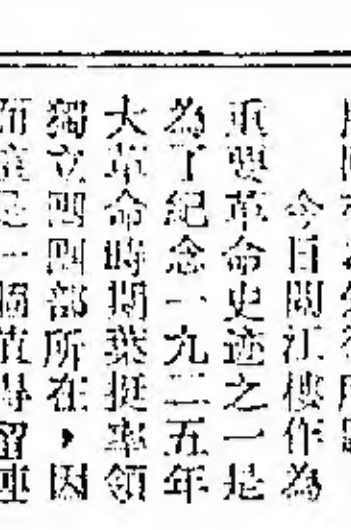 今日閱江樓作為
重要革命史迹之一是
為了紀念一九二五年
大革命時期葉挺率領
獨立團團部所在，因
是一個值得留連